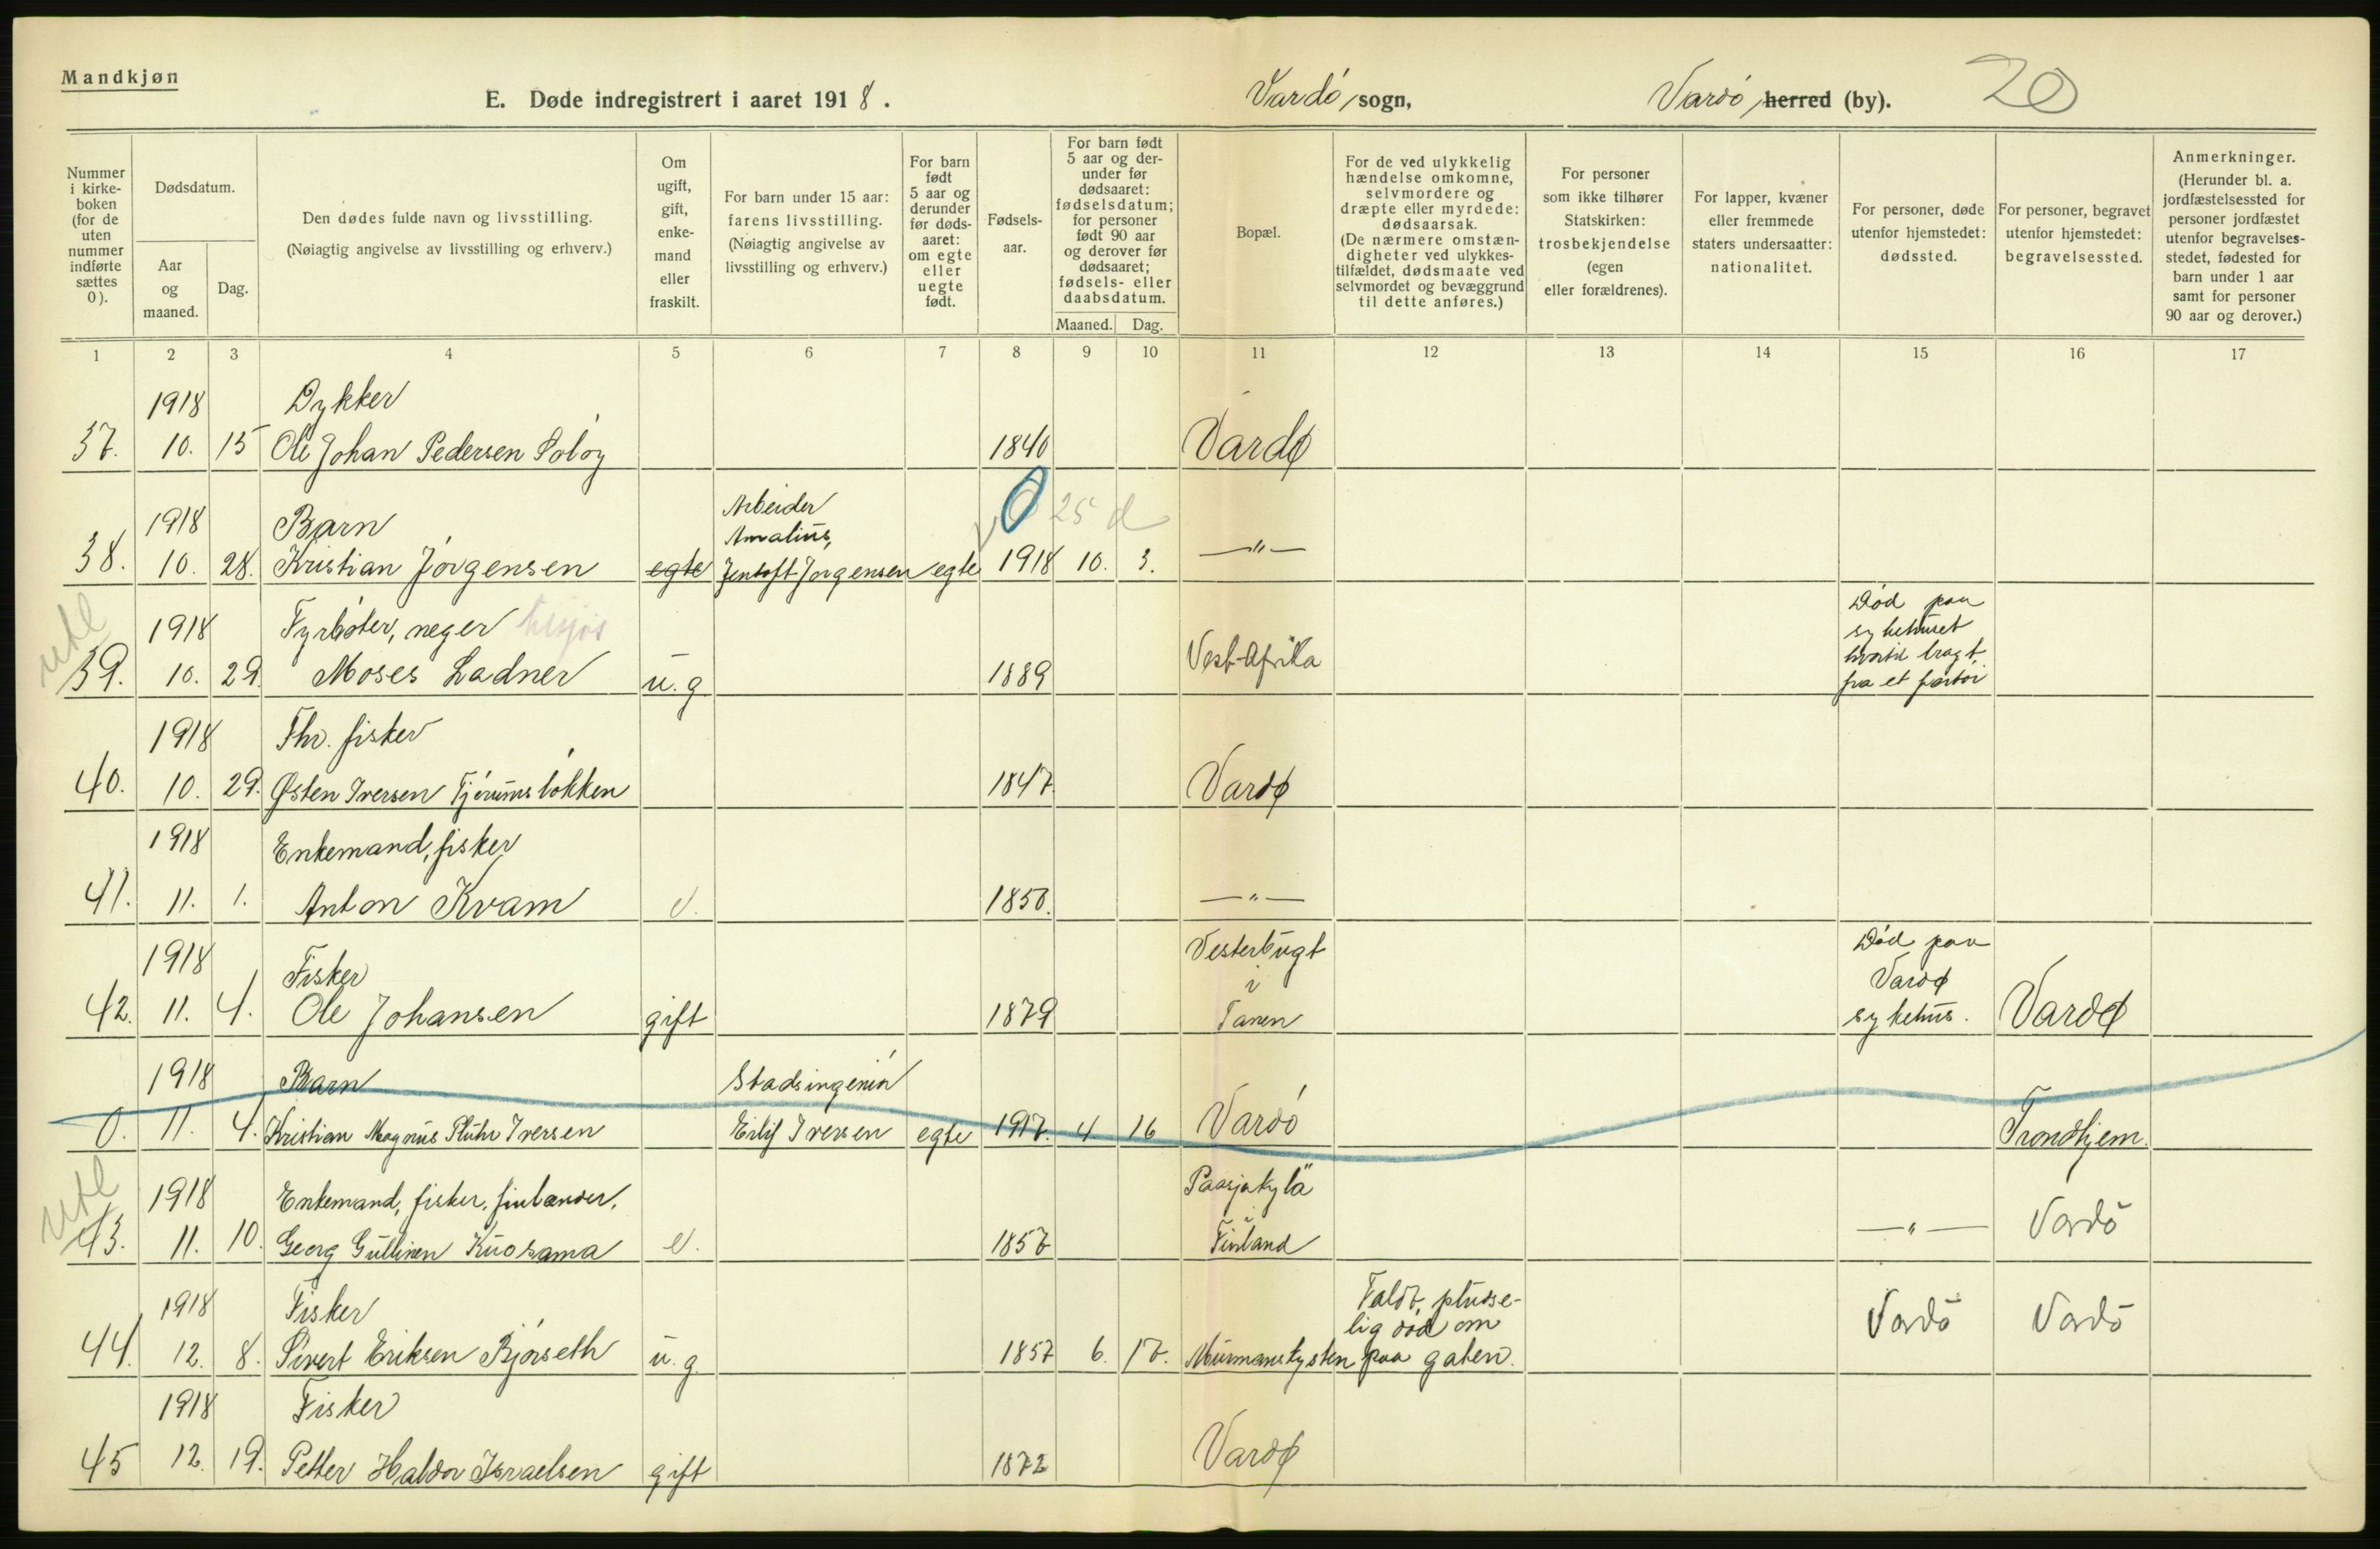 Mandkjøn
E. Døde indregistrert i aaret 1918.
Vardö sogn,
Vardö herred (by).
20
Nummer i kirkeboken (for de uten nummer indførte sættes 0).
Dødsdatum.
Aar og maaned.
Dag.
Den dødes fulde navn og livsstilling.
(Nøiagtig angivelse av livsstilling og erhverv.)
Om ugift, gift, enkemand eller fraskilt.
For barn under 15 aar: farens livsstilling.
(Nøiagtig angivelse av livsstilling og erhverv.)
For barn født 5 aar og derunder før dødsaaret: om egte eller uegte født.
Fødselsaar.
For barn født 5 aar og derunder før dødsaaret: fødselsdatum; for personer født 90 aar og derover før dødsaaret; fødsels- eller daabsdatum.
Maaned. Dag.
Bopæl.
For de ved ulykkelig hændelse omkomne, selvmordere og dræpte eller myrdede: dødsaarsak.
(De nærmere omstændigheter ved ulykkestilfældet, dødsmaate ved selvmordet og bevæggrund til dette anføres.)
For personer som ikke tilhører Statskirken: trosbekjendelse (egen eller forældrenes).
For lapper, kvæner eller fremmede staters undersaatter: nationalitet.
For personer, døde utenfor hjemstedet: dødssted.
For personer, begravet utenfor hjemstedet: begravelsessted.
Anmerkninger.
(Herunder bl. a. jordfæstelsessted for personer jordfæstet utenfor begravelsesstedet, fødested for barn under 1 aar samt for personer 90 aar og derover.)
1 2 3 4 5 6 7 8 9 10 11 12 13 14 15 16 17
1918 Dykker
37. 10. 15 Ole Johan Pedersen 1840 Vardø
0 25 d
1918 Barn Arbeider
Amalius,
38. 10. 28. Kristian Jörgensen egte Jentoft Jorgensen egte 1918 10. 3. —"—
utl
1918 Fyrböter, neger Død paa
sykehuset
hvortil bragt
39. 10. 29. Moses Ladner u. g 1889 Vest-Afrika fra et fartöi
1918 Fhv. fisker
40. 10. 29. Østen Iversen 1847. Vardø
1918 Enkemand, fisker
41. 11. 1. Anton Kvam e. 1850. —"—
1918 Fisker Vesterbugt Död paa
i Vardø
42. 11. 4. Ole Johansen gift 1879 Tanen sykehus. Vardø
1918 Barn Stadsingeniör
0. 11. 4. Kristian Magnus Iversen Erlif Iversen egte 1917. 4 16 Vardö Trondhjem.
utl
1918 Enkemand, fisker, finlænder.
i
43. 11. 10. Georg Gullinen Kuosama e. 1857 Finland —"— Vardö
1918 Fisker Faldt, pludse-
lig död om
44. 12. 8. Sivert Eriksen Björseth u. g 1857 6. 17. Murmanskysten paa gaten. Vardö Vardö
1918 Fisker
45 12. 19. Petter Haldor Israelsen gift 1872 Vardø